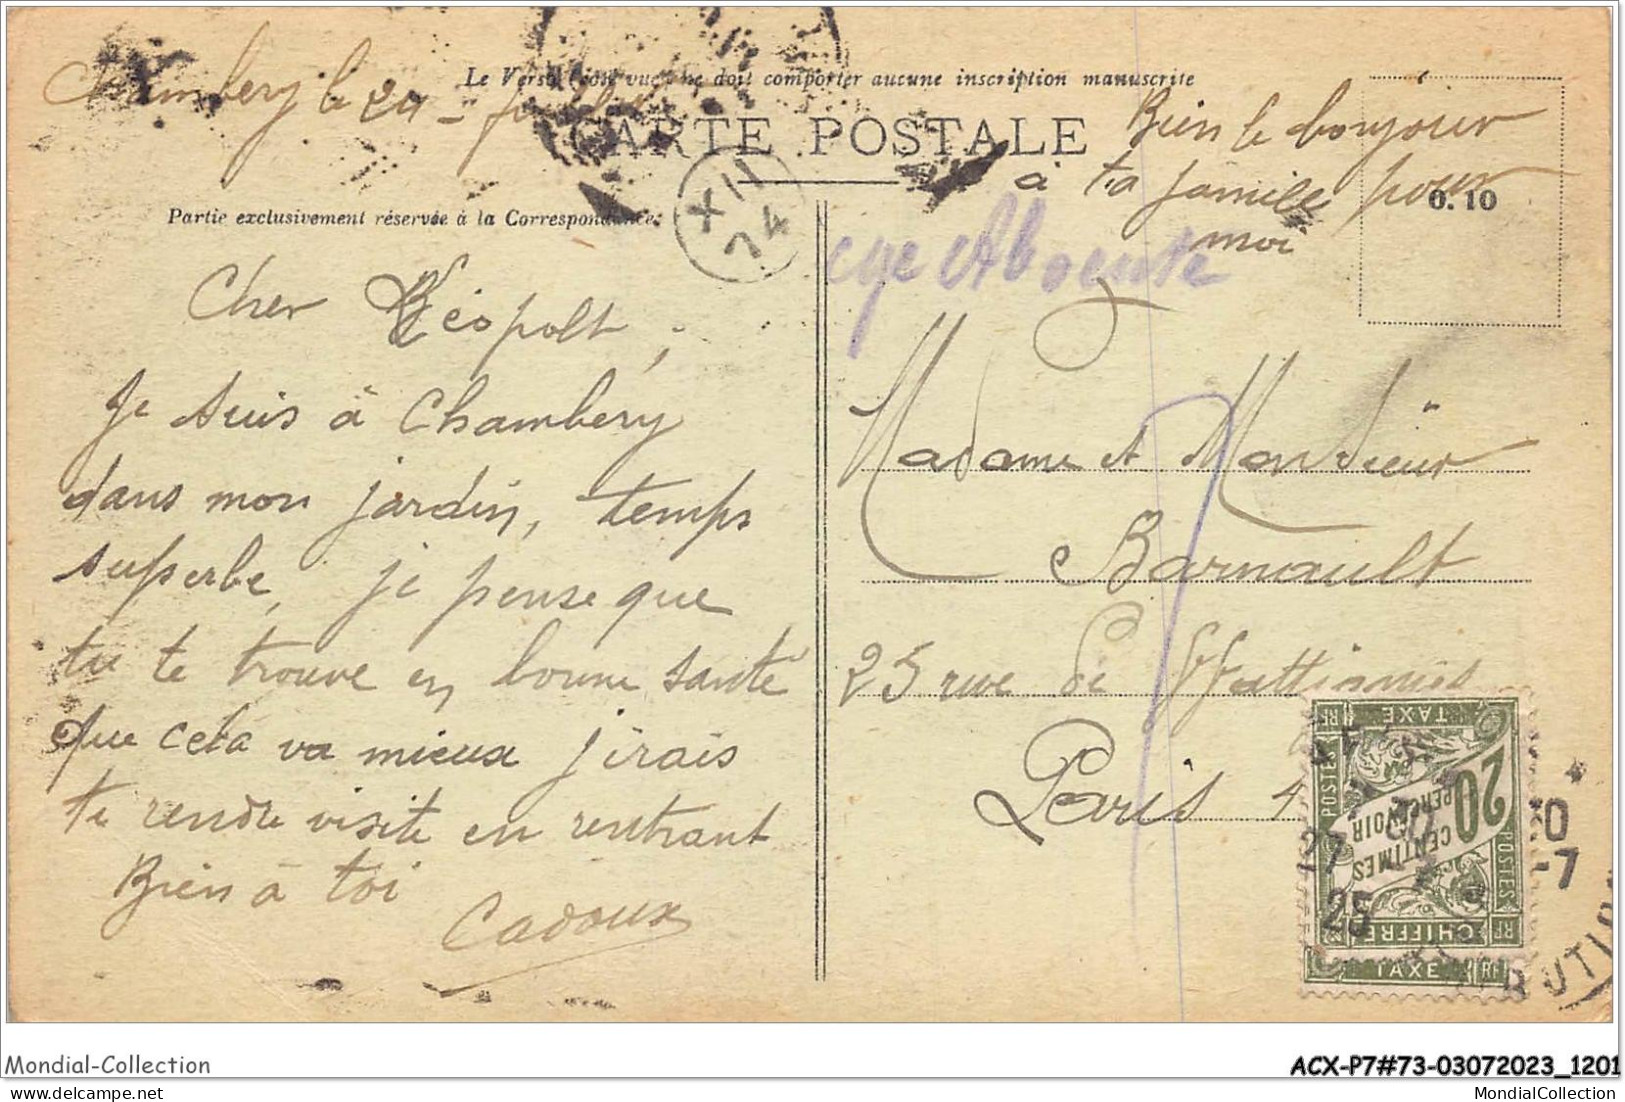 Chambery le 20 - juillet
Le Verso côté vue ne doit comporter aucune inscription manuscrite
CARTE POSTALE
Bien le bonjour
à ta famille pour
moi
0.10
Partie exclusivement réservée à la Correspondance:
XII
74
Absente
Cher Léopolt,
Je suis à Chambery
dans mon jardin, temps
superbe, je pense que
tu te trouve en bonne santé
que cela va mieux j'irais
te rendre visite en rentrant
Bien à toi
Cadoux
Madame et Monsieur
Barnault
25 rue de
Paris
POSTES TAXE RF
20 CENTIMES
PERCEVOIR
CHIFFRE
TAXE RF
27
25
30
-7
Mondial-Collection
ACX-P7#73-03072023_1201
MondialCollection